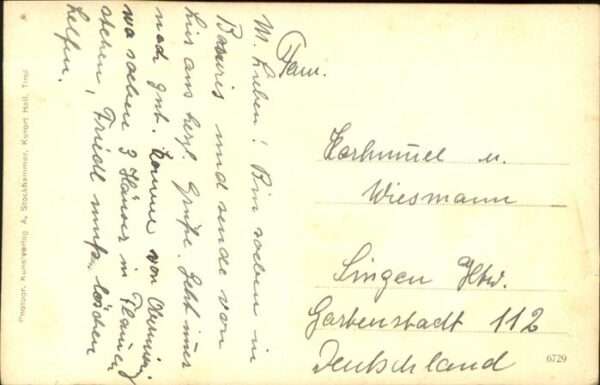 M. Lieben! Bin soeben in
Bayris und sende von
hier aus herzl. Grüße. Geht immer
noch gut. Komme von
wo soeben 3 Häuser in Flammen
stehen, Friedl muß löschen
helfen.
Fam.
Korhummel u.
Wiesmann
Singen Htw.
Gartenstadt 112
Deutschland
6729
Photogr. Kunstverlag A. Stockhammer, Kurort Hall, Tirol